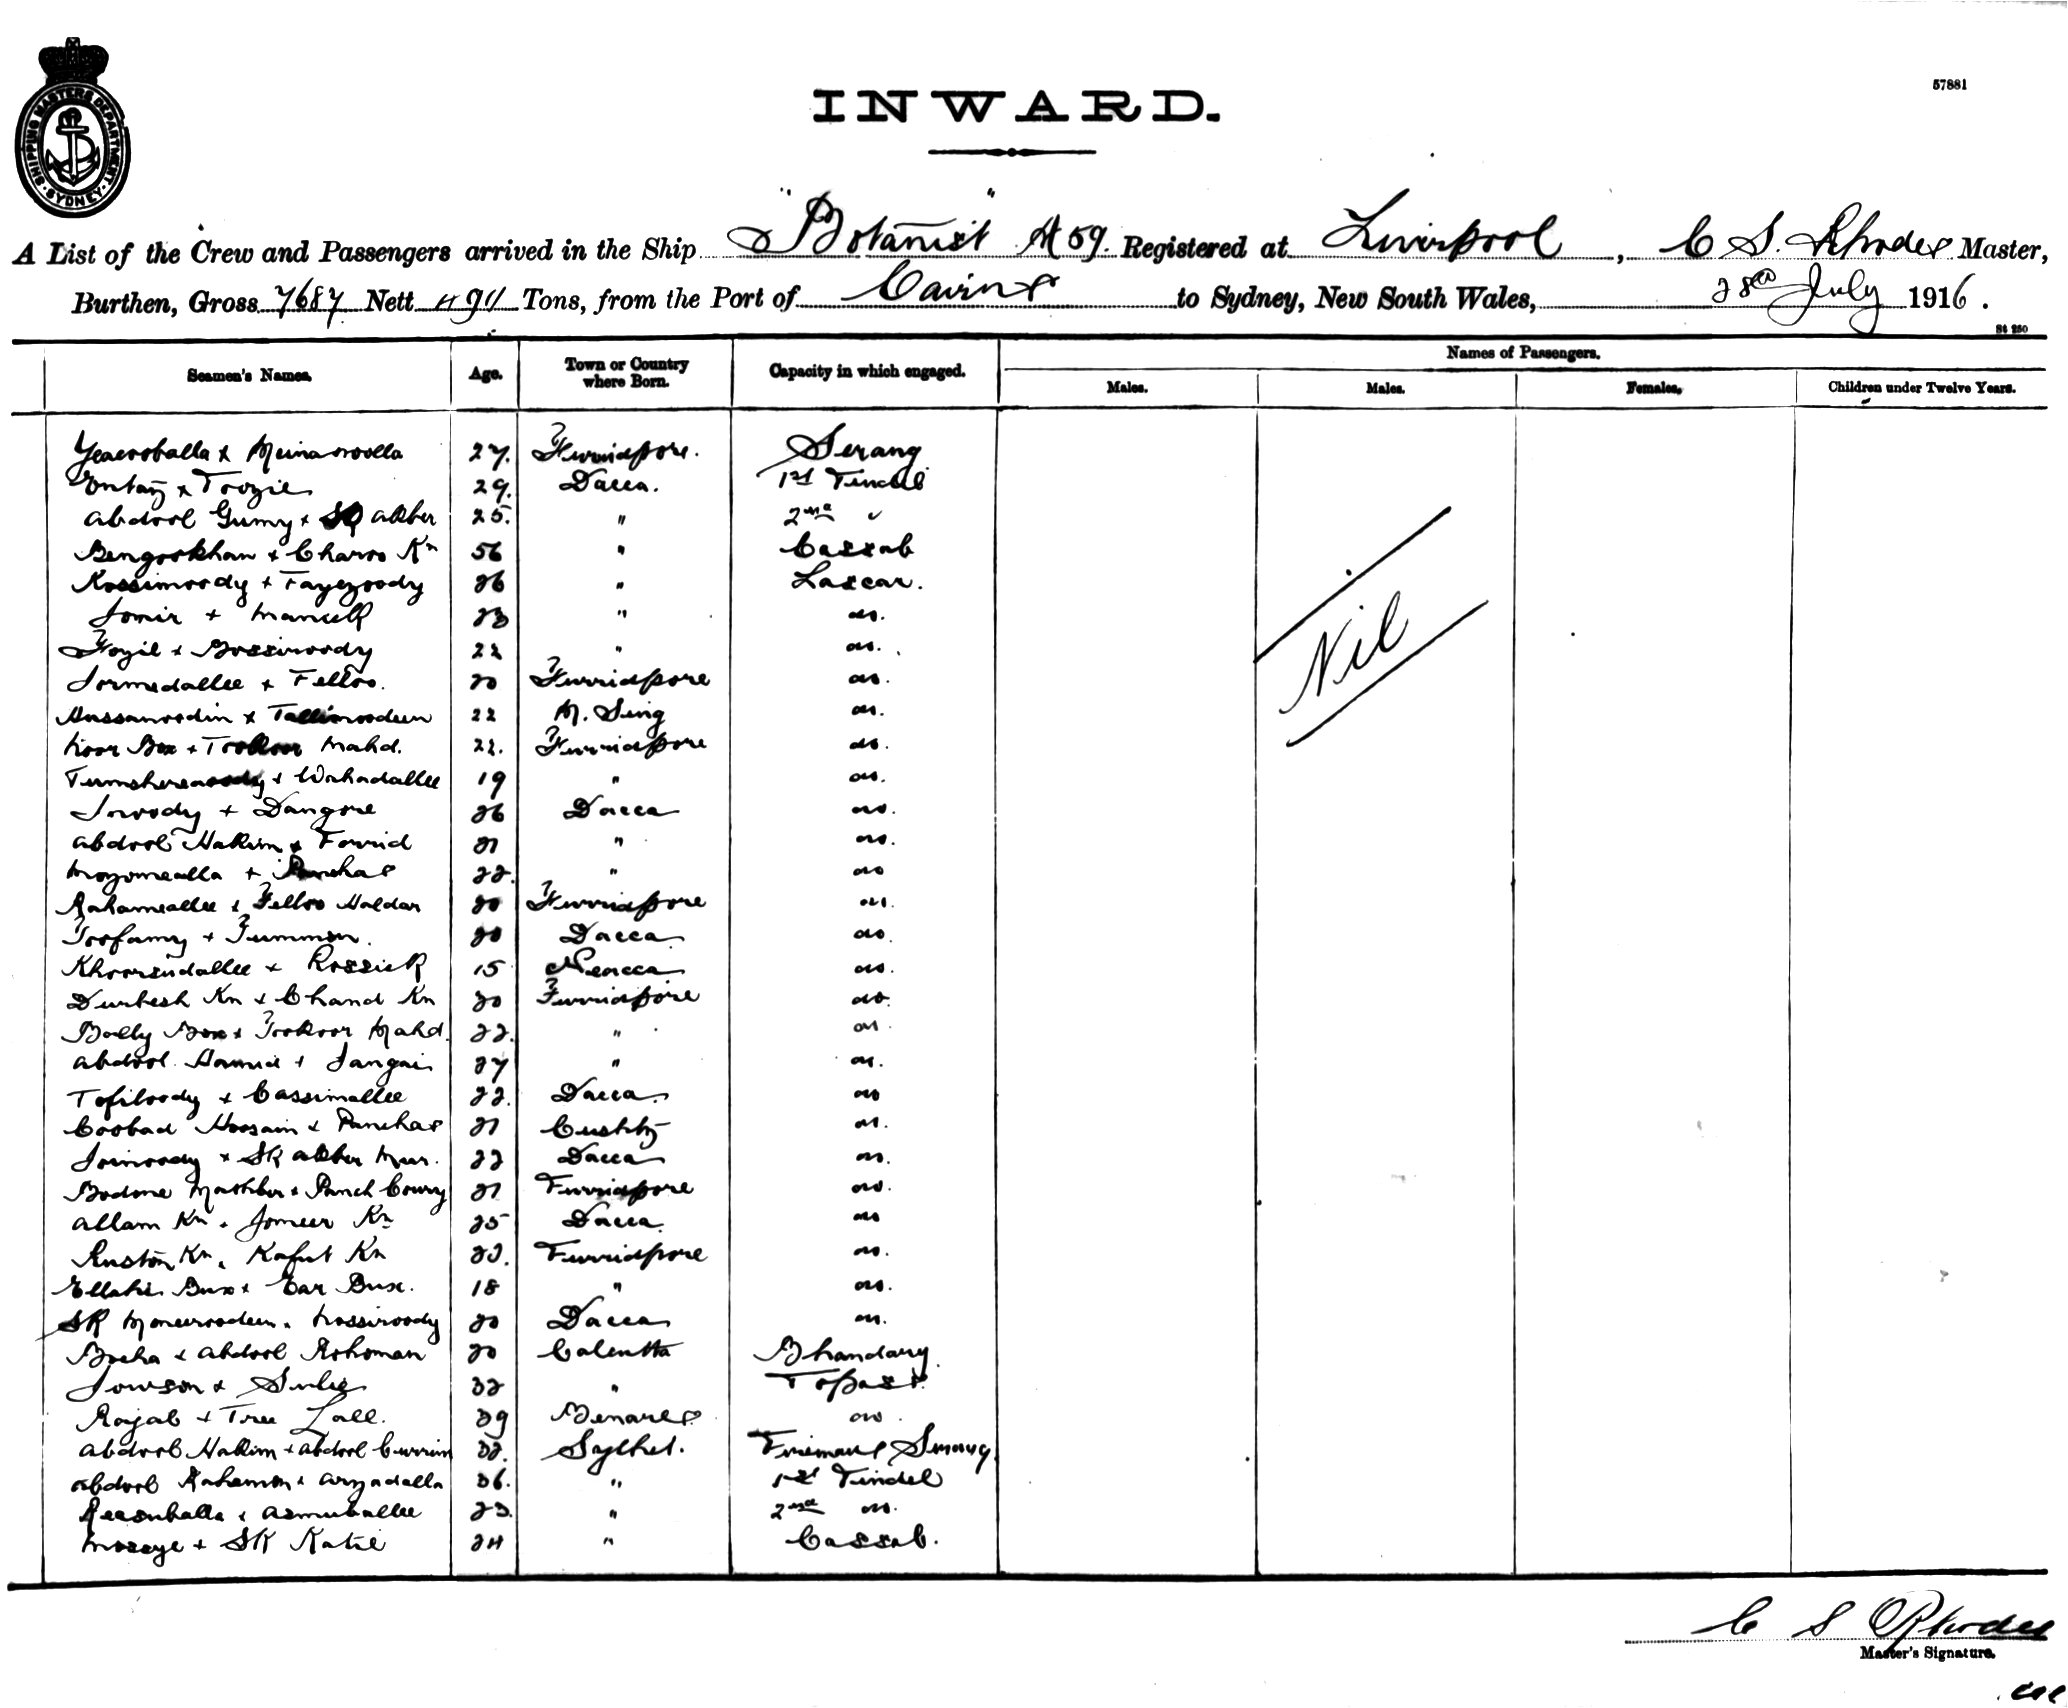 SHIPPING MASTERS DEPARTMENT SYDNEY
57881
INWARD.
A List of the Crew and Passengers arrived in the Ship "Botanist" A 59. Registered at Liverpool, C S. Rhodes Master,
Burthen, Gross 7687 Nett 4911 Tons, from the Port of Cairns to Sydney, New South Wales, 28th July 1916.
St 250
Seamen's Names. Age. Town or Country where Born. Capacity in which engaged. Names of Passengers.
Males. Males. Females. Children under Twelve Years.
27. Furridpore. Serang
29. Dacca. 1st Tindel
Abdool Gumy x Sk Akber 25. " 2nd "
Bengookhan x Charoo Kn 56 " Cassab
Kossimoody x Fayezoody 26 " Lascar.
Jomir x " do.
Fozil x Bossiroody 22 " do.
Jormedallee x Felloo. 20 Furridpore do.
Hussanoodin x 22 M. Sing do.
Noor Box x Mahd. 22. Furridpore do.
x Wahadallee 19 " do.
Joroody x Dangore 26 Dacca do.
Abdool Hakim x Forrid 21 " do.
Mozomealla x Panchas 22. " do
Rahameallee x Felloo Haldar 20 Furridpore do.
Toofamy x Jummon. 20 Dacca. do.
Khoorsudallee x Rossick 15 do.
Durbesh Kn x Chand Kn 20 Furridpore do.
Bolly Box x Tookoor Mahd. 22. " do.
Abdool Hamid x Jangai 27 " do.
Tofiloody x Cassimallee 22. Dacca. do
Coobad Hoosain x Panchas 21 do.
Joinoody x Sk Akber 22 Dacca do.
Bodone Mathber x Panch Cowry 21 Furridpore do.
Allam Kn x Jomeer Kn 25 Dacca. do
Rustom Kn x Kn Furridpore do.
Ellahi Bux x Ear Bux. 18 " do.
Sk Moneeroodeen x Nossiroody 20 Dacca do.
Bocha x Abdool Rohoman 20 Calcutta Bhandary.
x 32 " Topass.
Rajab x Tree Lall. 39 Benares do.
Abdool Hakim x Abdool Currim 32. Sylhet. Firemans Serang
Abdool Rahemon x Arzadalla 36. " 1st Tindel
x 23. " 2nd do.
x Sk Katie 24 " Cassab.
Nil
C S Rhodes
Master's Signature.